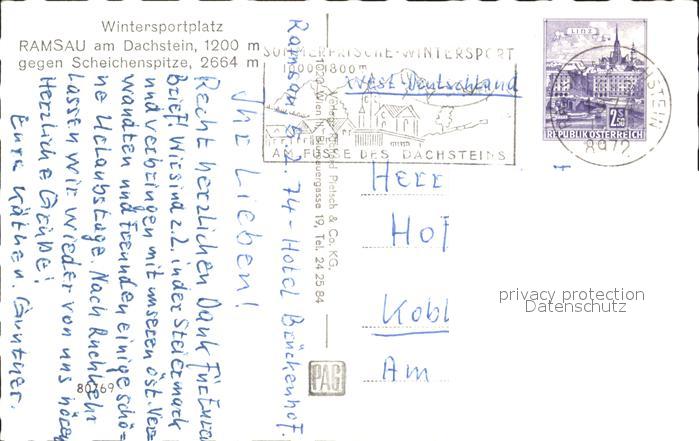 Wintersportplatz
RAMSAU am Dachstein, 1200 m
gegen Scheichenspitze, 2664 m
SOMMERFRISCHE-WINTERSPORT
1000-1800m
AM FUSSE DES DACHSTEINS
LINZ
2.50
REPUBLIK ÖSTERREICH
8972
Ramsau 6.2.74 - Hotel Brückenhof.
Ihr Lieben!
Recht herzlichen Dank für Euren
Brief! Wir sind z.Z. in der Steiermark
und verbringen mit unseren öst. Ver-
wandten und Freunden einige schö-
ne Urlaubstage. Nach Rückkehr
lassen wir wieder von uns hören
Herzliche Grüße!
Eure Käthen. Günther.
Pietsch & Co. KG.
19, Tel. 24 25 84
PAG
80769
West Deutschland
Herr
Hof
Kobl
Am
privacy protection
Datenschutz